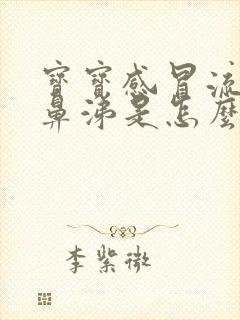 寶寶感冒流
鼻涕是怎麼
李紫微